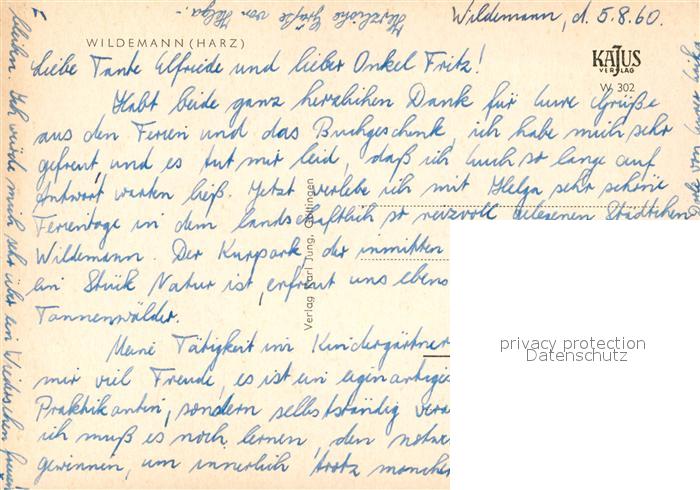 Wildemann, d. 5.8.60.
WILDEMANN (HARZ)
KAJUS
VERLAG
W 302
Liebe Tante Elfriede und lieber Onkel Fritz!
Habt beide ganz herzlichen Dank für Eure Grüße
aus den Ferien und das Buchgeschenk, ich habe mich sehr
gefreut, und es tut mir leid, daß ich Euch so lange auf
Antwort warten ließ. Jetzt verlebe ich mit Helga sehr schöne
Ferientage in dem landschaftlich so reizvoll gelegenen Städtchen
Wildemann. Der Kurpark, der inmitten
ein Stück Natur ist, erfreut uns ebens
Tannenwälder.
Meine Tätigkeit im Kindergärtner
mir viel Freude, es ist ein eigenartiges
Praktikantin, sondern selbstständig vera
ich muß es noch lernen, den notwe
gewinnen, um innerlich trotz manchen
bleiben. Ich würde mich sehr über ein Wiedersehen freuen!
Herzliche Grüße von Helga.-
Verlag Karl Jung, Göttingen
privacy protection
Datenschutz